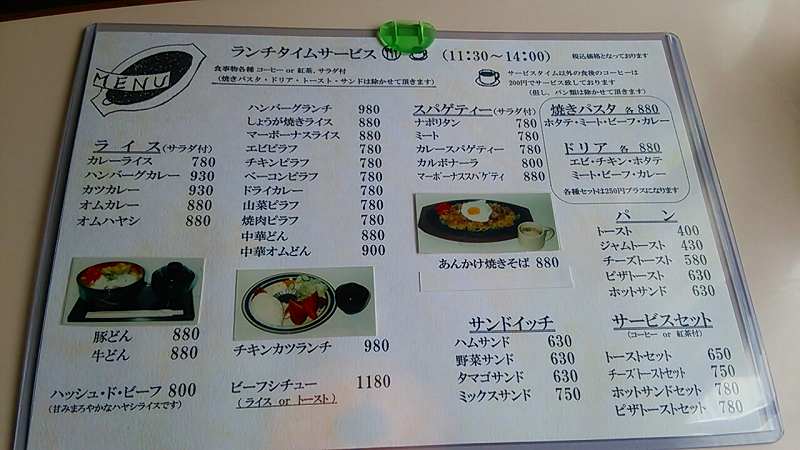 MENU
ランチタイムサービス (11:30~14:00) 税込価格となっております
食事物各種 コーヒー or 紅茶, サラダ付
(焼きパスタ・ドリア・トースト・サンドは除かせて頂きます)
サービスタイム以外の食後のコーヒーは
200円でサービス致しております
(但し、パン類は除かせて頂きます)
ライス(サラダ付)
カレーライス 780
ハンバーグカレー 930
カツカレー 930
オムカレー 880
オムハヤシ 880
豚どん 880
牛どん 880
ハッシュ・ド・ビーフ 800
(甘みまろやかなハヤシライスです)
ハンバーグランチ 980
しょうが焼きライス 880
マーボーナスライス 880
エビピラフ 780
チキンピラフ 780
ベーコンピラフ 780
ドライカレー 780
山菜ピラフ 780
焼肉ピラフ 780
中華どん 880
中華オムどん 900
チキンカツランチ 980
ビーフシチュー 1180
(ライス or トースト)
スパゲティー(サラダ付)
ナポリタン 780
ミート 780
カレースパゲティー 780
カルボナーラ 800
マーボーナススパゲティ 880
あんかけ焼きそば 880
サンドイッチ
ハムサンド 630
野菜サンド 630
タマゴサンド 630
ミックスサンド 750
焼きパスタ 各880
ホタテ・ミート・ビーフ・カレー
ドリア 各880
エビ・チキン・ホタテ
ミート・ビーフ・カレー
各種セットは250円プラスになります
パン
トースト 400
ジャムトースト 430
チーズトースト 580
ピザトースト 630
ホットサンド 630
サービスセット
(コーヒー or 紅茶付)
トーストセット 650
チーズトーストセット 750
ホットサンドセット 780
ピザトーストセット 780